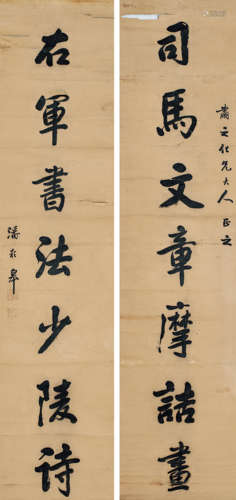 司馬文章摩詰畫
肅之仁兄大人正之
右軍書法少陵詩
潘齡皋